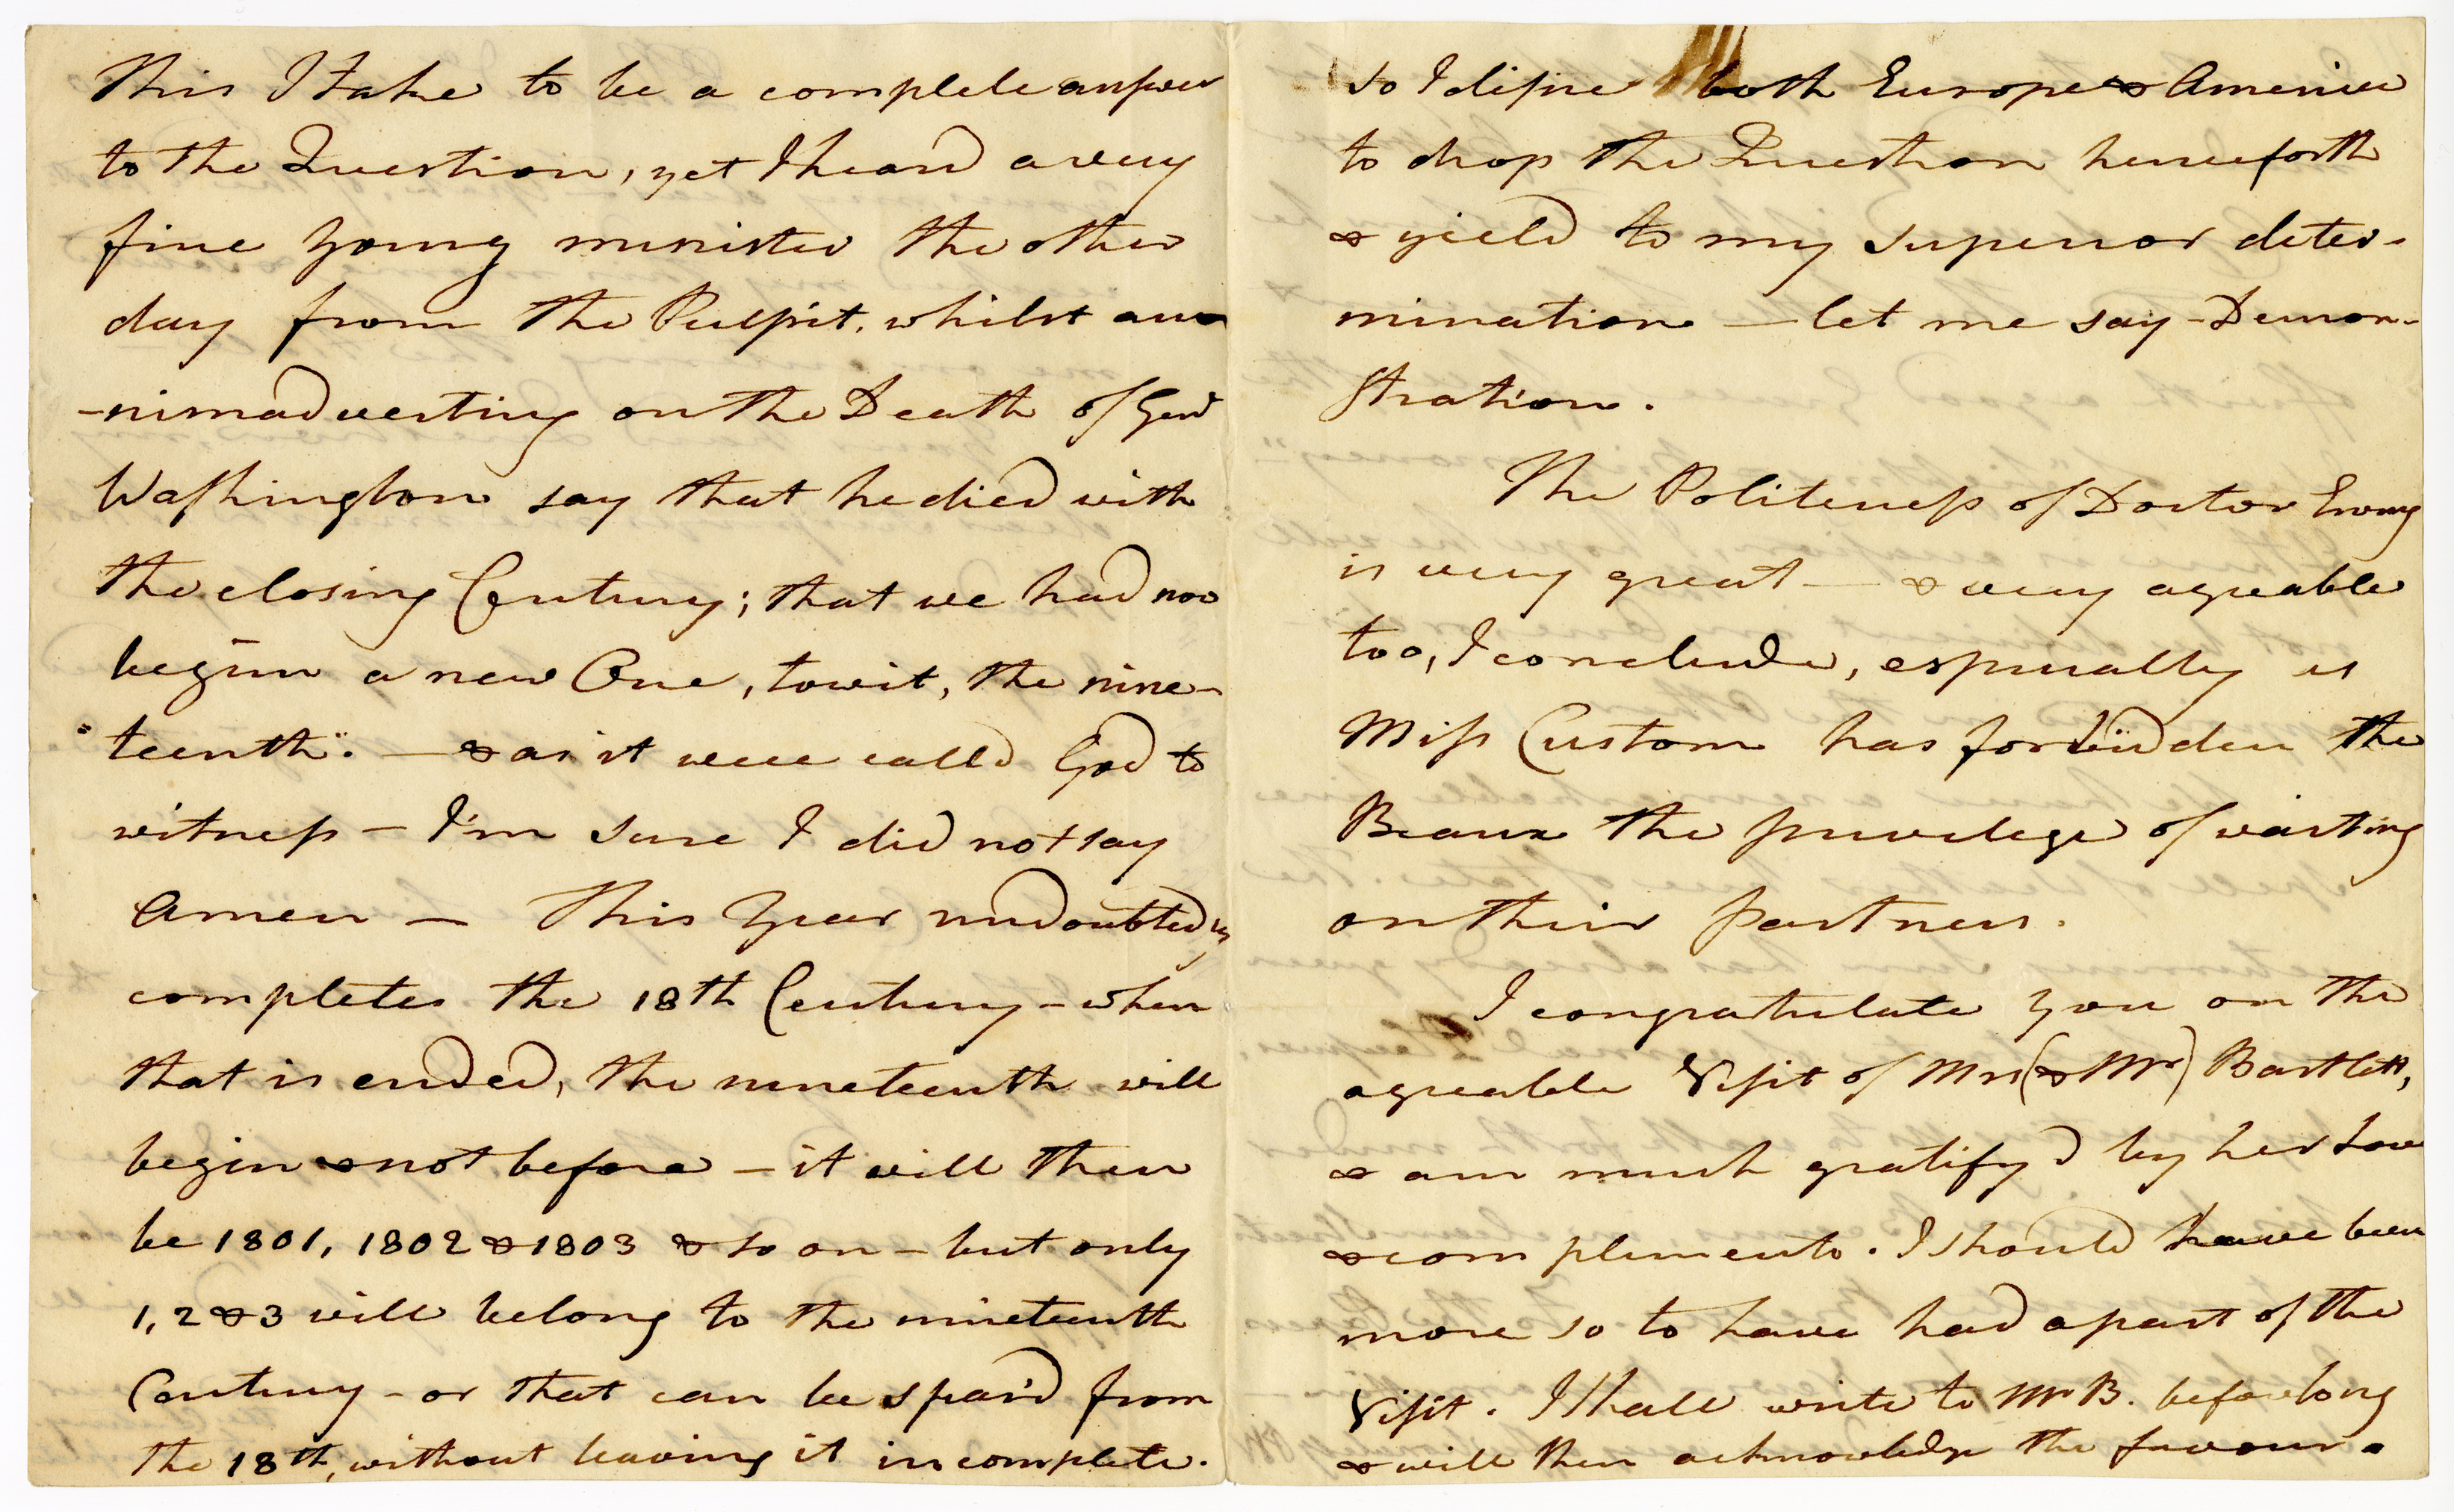 This I take to be a complete answer
to the Question, yet I heard a very
fine young minister the other
day from the Pulpit, whilst an
-nimadverting on the Death of Genl
Washington say that he died with
the closing Century; that we had now
begun a new One, towit, the nine-
"teenth". — & as it were call'd God to
witness — I'm sure I did not say
Amen — This Year undoubtedly
completes the 18th Century — when
that is ended, the nineteenth will
begin & not before — it will then
be 1801, 1802 & 1803 & so on — but only
1, 2 & 3 will belong to the nineteenth
Century — or that can be spar'd from
the 18th, without leaving it incomplete.
so I desire both Europe & America
to drop the Question henceforth
& yield to my superior deter-
mination — let me say — Demon-
stration.
The Politeness of Doctor
is very great — & very agreable
too, I conclude, espicially as
Miss Custom has forbidden the
Beaux the privelege of waiting
on their partners.
I congratulate you on the
agreable Visit of Mrs (& Mr) Bartlett,
& am much gratify'd by her Love
& complements. I should have been
more so to have had a part of the
Visit. I shall write to Mr B. before long
& will then acknowledge the favour.